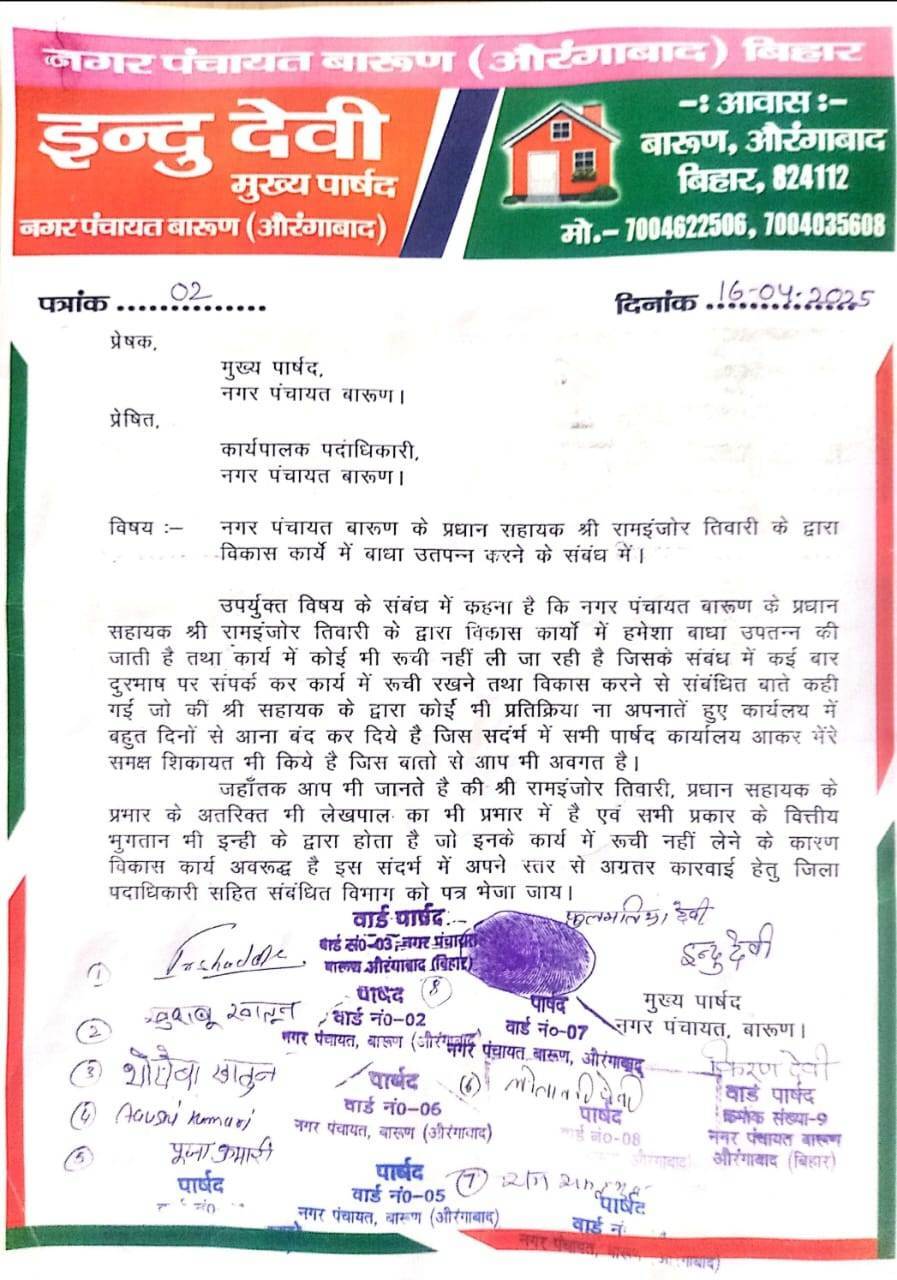 नगर पंचायत बारूण (औरंगाबाद) बिहार
इन्दु देवी
मुख्य पार्षद
नगर पंचायत बारूण (औरंगाबाद)
-: आवास :-
बारूण, औरंगाबाद
बिहार, 824112
मो.– 7004622506, 7004035608
पत्रांक ...02...
दिनांक ...16-04-2025
प्रेषक,
मुख्य पार्षद,
नगर पंचायत बारूण।
प्रेषित,
कार्यपालक पदाधिकारी,
नगर पंचायत बारूण।
विषय :– नगर पंचायत बारूण के प्रधान सहायक श्री रामइंजोर तिवारी के द्वारा
विकास कार्ये में बाधा उतपन्न करने के संबंध में।
उपर्युक्त विषय के संबंध में कहना है कि नगर पंचायत बारूण के प्रधान
सहायक श्री रामइंजोर तिवारी के द्वारा विकास कार्यो में हमेशा बाधा उपतन्न की
जाती है तथा कार्य में कोई भी रूची नहीं ली जा रही है जिसके संबंध में कई बार
दुरभाष पर संपर्क कर कार्य में रूची रखने तथा विकास करने से संबंधित बाते कही
गई जो की श्री सहायक के द्वारा कोई भी प्रतिक्रिया ना अपनातें हुए कार्यलय में
बहुत दिनों से आना बंद कर दिये है जिस सदंर्भ में सभी पार्षद कार्यालय आकर भेंरे
समक्ष शिकायत भी किये है जिस बातो से आप भी अवगत है।
जहाँतक आप भी जानते है की श्री रामइंजोर तिवारी, प्रधान सहायक के
प्रभार के अतरिक्त भी लेखपाल का भी प्रभार में है एवं सभी प्रकार के वित्तीय
मुगतान भी इन्ही के द्वारा होता है जो इनके कार्य में रूची नहीं लेने के कारण
विकास कार्य अवरूद्ध है इस संदर्भ में अपने स्तर से अग्रतर कारवाई हेतु जिला
पदाधिकारी सहित संबंधित विभाग को पत्र भेजा जाय।
वार्ड पार्षद
वार्ड सं0-03, नगर पंचायत
बारूण औरंगाबाद (बिहार)
फुलमतिया देवी
इन्दु देवी
मुख्य पार्षद
नगर पंचायत, बारूण।
1
2 खुशबू खातून
पार्षद
वार्ड नं0-02
नगर पंचायत, बारूण (औरंगाबाद)
8
पार्षद
वार्ड नं0-07
नगर पंचायत बारूण, औरंगाबाद
3 शोऐबा खातुन
पार्षद
वार्ड नं0-06
नगर पंचायत, बारूण (औरंगाबाद)
6
पार्षद
वार्ड नं0-08
किरण देवी
वार्ड पार्षद
क्रमांक संख्या-9
नगर पंचायत बारूण
औरंगाबाद (बिहार)
4 Aarshi Kumari
5 पूजा कुमारी
पार्षद
पार्षद
वार्ड नं0-05
नगर पंचायत, बारूण (औरंगाबाद)
7
पार्षद
वार्ड नं
नगर पंचायत, बारूण (औरंगाबाद)